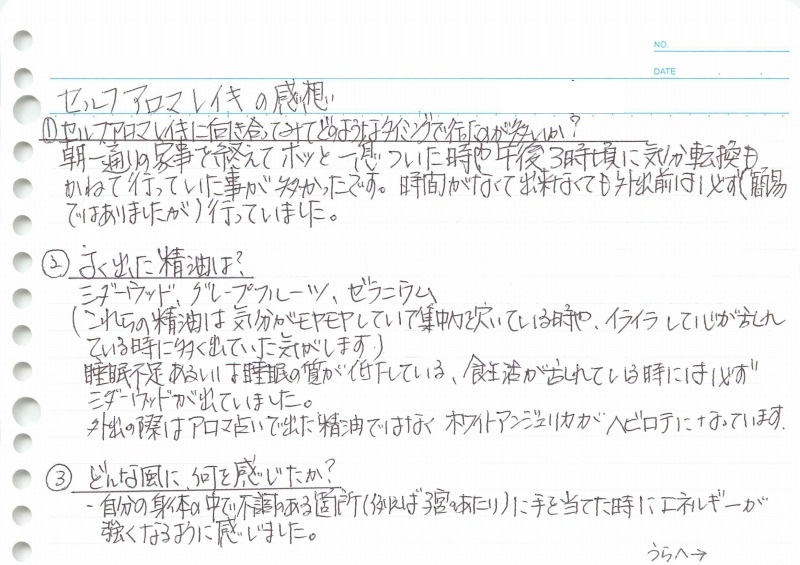 NO.
DATE
セルフアロマレイキの感想
①セルフアロマレイキに向き合ってみてどのようなタイミングで行ったのが多いか?
朝一通りの家事を終えてホッと一息ついた時や午後3時頃に気分転換も
かねて行っていた事が多かったです。時間がなくて出来なくても外出前は必ず(簡易
ではありましたが)行っていました。
②よく出た精油は?
シダーウッド、グレープフルーツ、ゼラニウム
(これらの精油は気分がモヤモヤしていて集中力を欠いている時や、イライラして心が乱れ
ている時に多く出ていた気がします)
睡眠不足あるいは睡眠の質が低下している、食生活が乱れている時には必ず
シダーウッドが出ていました。
外出の際はアロマ占いで出た精油ではなくホワイトアンジェリカがヘビロテになっています.
③どんな風に、何を感じたか?
- 自分の身体の中で不調のある箇所(例えば子宮のあたり)に手を当てた時にエネルギーが
強くなるように感じました。
うらへ→